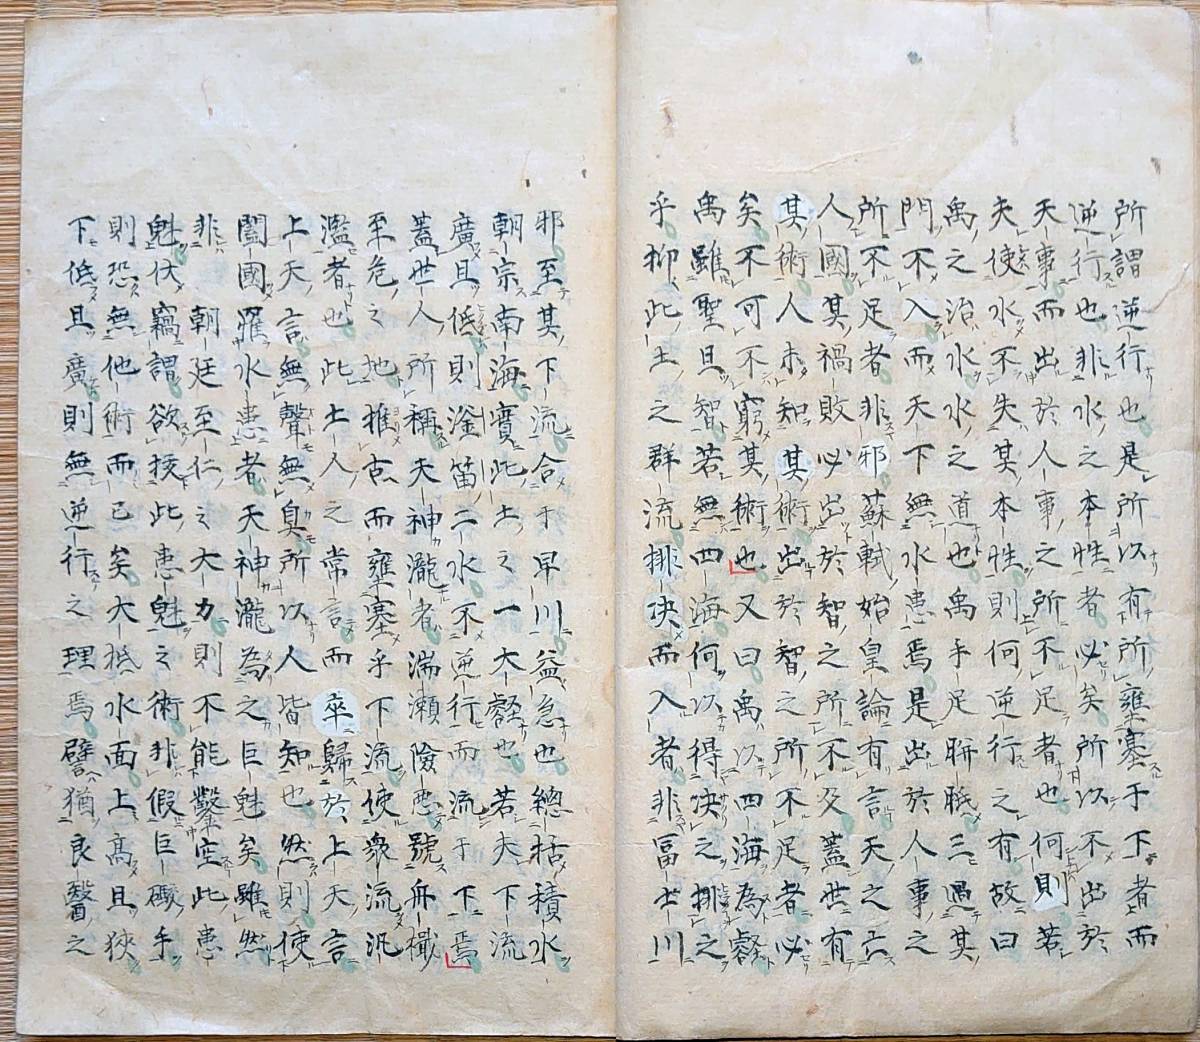 所謂逆行也是所以有所壅塞于下者而
逆行也非水之本性者必矣所以不出於
天事而出於人事之所不足者也何則若
夫使水不失其本性則何逆行之有故曰
禹之治水水之道也禹手足胼胝三過其
門不入而天下無水患焉是出於人事之
所不足者非邪蘇軾始皇論有言天之亡
人國其禍敗必出於智之所不及蓋世有
其術人未知其術出於智之所不足者必
矣不可不窮其術也又曰禹以四海為壑
禹雖聖且智若無四海何以得决之排之
乎抑此土之群流排决而入者非冨士川
邪至其下流合于早川益急也總括積水
朝宗南海實此土之一大壑也若夫下流
廣且低則釜笛二水不逆行而流于下焉
蓋世人所稱天神瀧者湍瀬險惡號舟檝
至危之地推古而壅塞乎下流使衆流汎
濫者也此土人之常言而卒歸於上天言
上天言無聲無臭所以人皆知也然則使
闔國罹水患者天神瀧為之巨魁矣雖然
非朝廷至仁之大力則不能鑿空此患
魁伏竊謂欲抜此患魁之術非假巨礮手
則恐無他術而已矣大抵水面上高且狹
下低且廣則無逆行之理焉譬猶良醫之